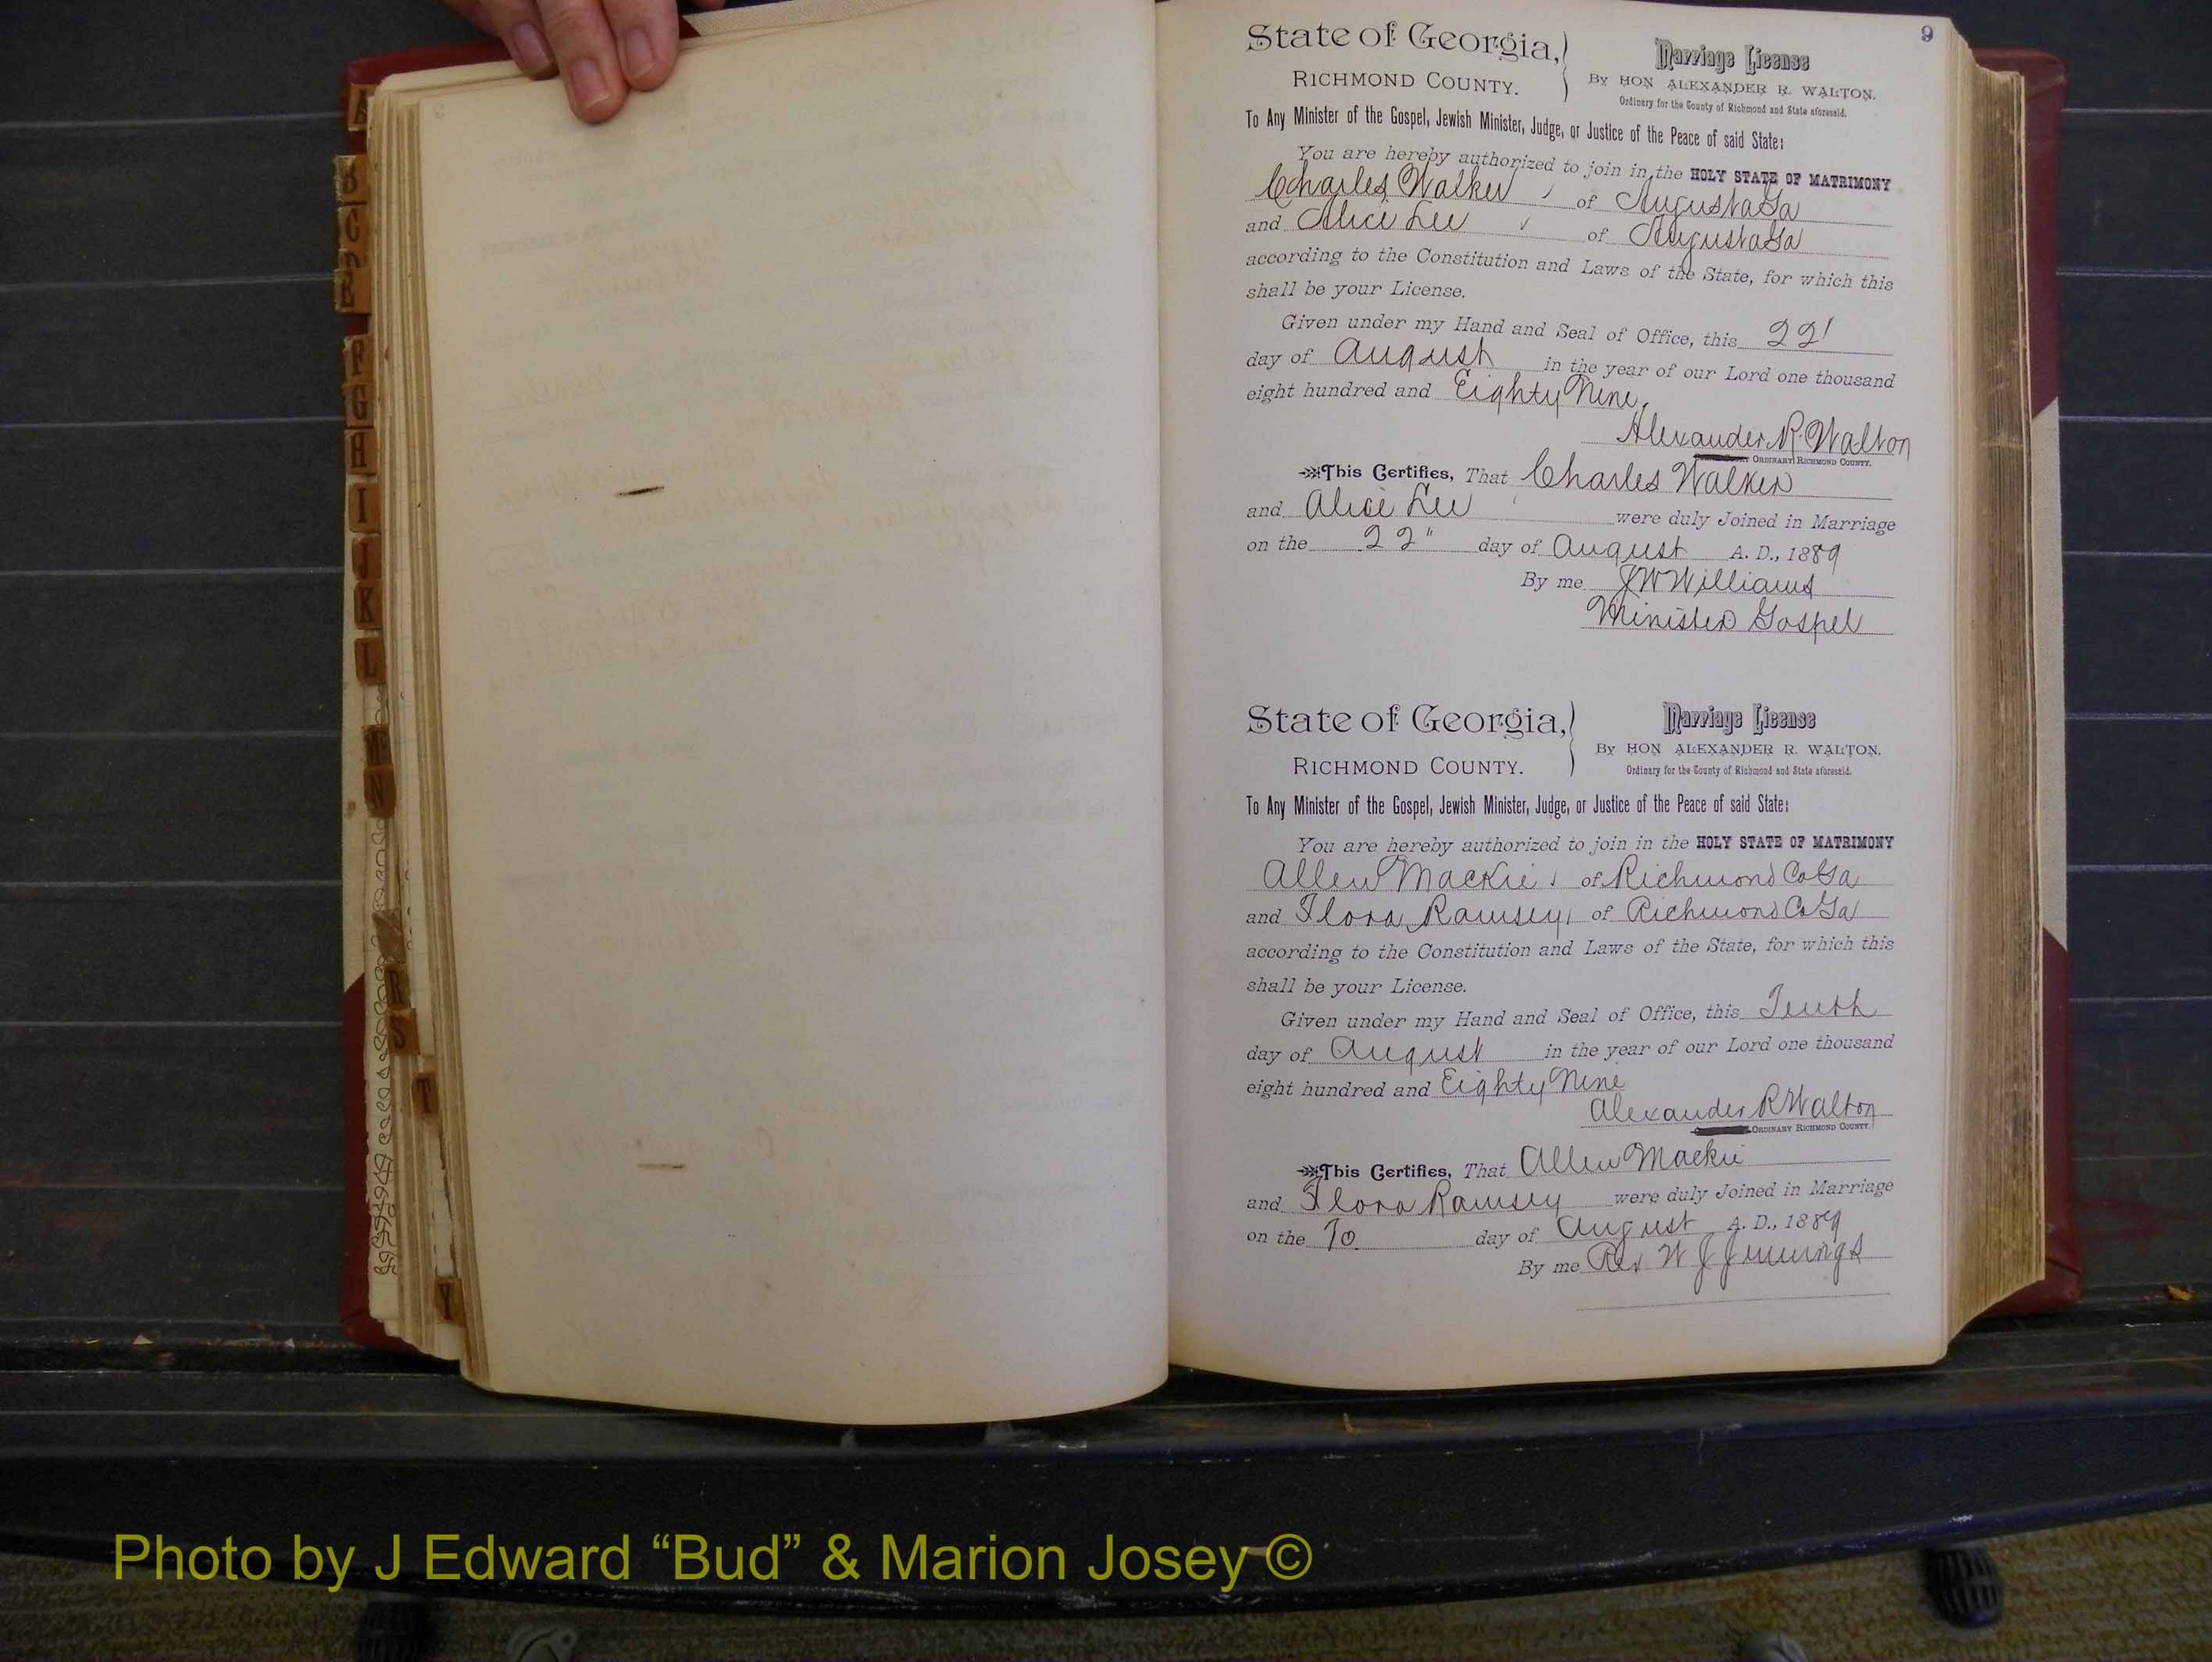 9
State of Georgia,
RICHMOND COUNTY.
Marriage License
By HON ALEXANDER R. WALTON,
Ordinary for the County of Richmond and State aforesaid.
To Any Minister of the Gospel, Jewish Minister, Judge, or Justice of the Peace of said State:
You are hereby authorized to join in the HOLY STATE OF MATRIMONY
Charles Walker of Augusta Ga
and Alice Lee of Augusta Ga
according to the Constitution and Laws of the State, for which this
shall be your License.
Given under my Hand and Seal of Office, this 22'
day of August in the year of our Lord one thousand
eight hundred and Eighty Nine.
Alexander R. Walton
ORDINARY RICHMOND COUNTY.
This Certifies, That Charles Walker
and Alice Lee were duly Joined in Marriage
on the 22" day of August A. D., 1889
By me JW Williams
Minister Gospel
State of Georgia,
RICHMOND COUNTY.
Marriage License
By HON ALEXANDER R. WALTON,
Ordinary for the County of Richmond and State aforesaid.
To Any Minister of the Gospel, Jewish Minister, Judge, or Justice of the Peace of said State:
You are hereby authorized to join in the HOLY STATE OF MATRIMONY
Allen Mackie of Richmond Co Ga
and Flora Ramsey, of Richmond Co Ga
according to the Constitution and Laws of the State, for which this
shall be your License.
Given under my Hand and Seal of Office, this Tenth
day of August in the year of our Lord one thousand
eight hundred and Eighty Nine
Alexander R Walton
ORDINARY RICHMOND COUNTY.
This Certifies, That Allen Mackie
and Flora Ramsey were duly Joined in Marriage
on the 10 day of August A. D., 1889
By me Rev W J Jennings
A
B
C
F
G
H
I
J
K
L
N
R
S
T
Y
Photo by J Edward “Bud” & Marion Josey ©